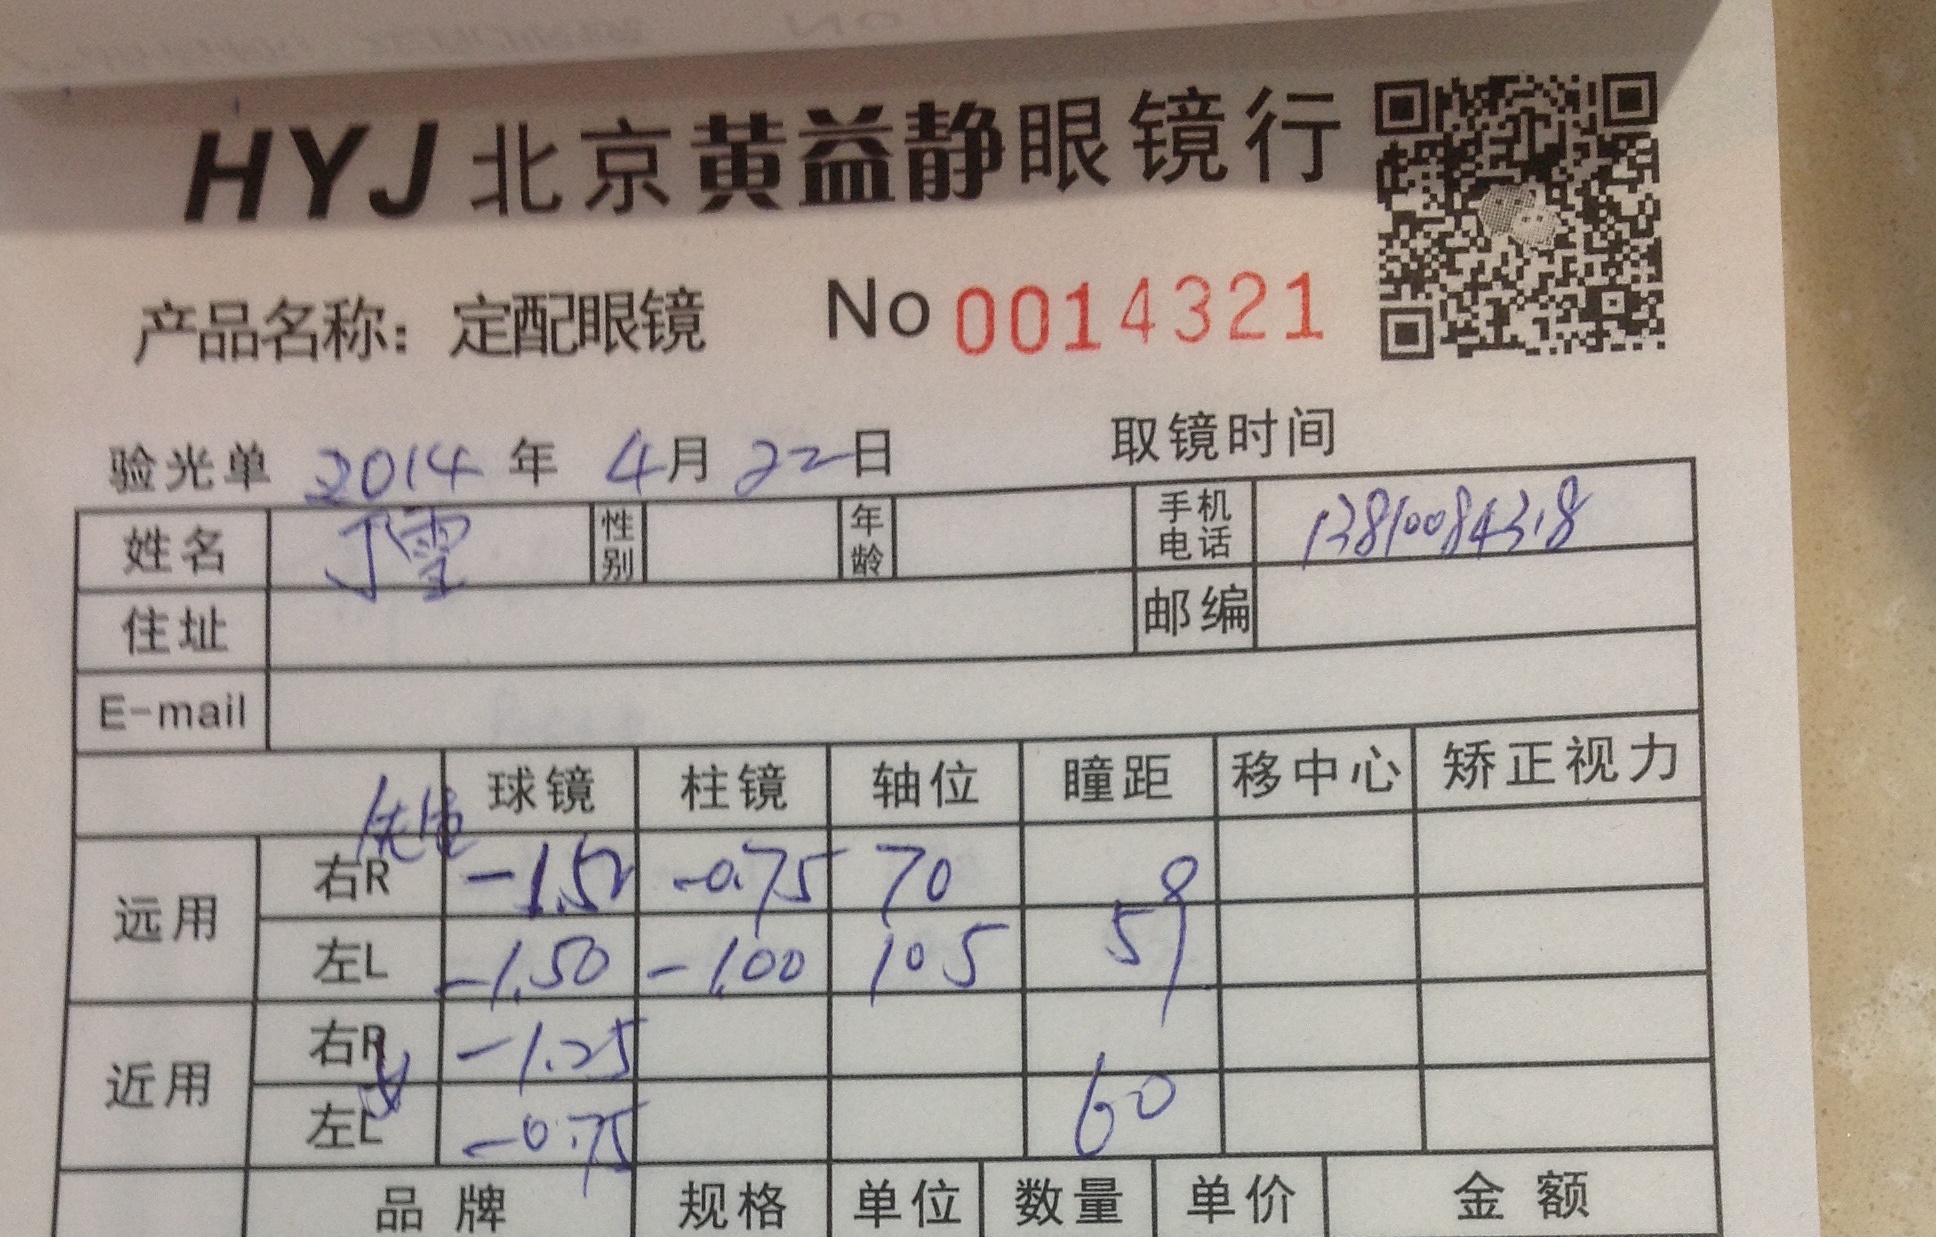 HYJ 北京黄益静眼镜行
产品名称：定配眼镜 No 0014321
验光单 2014 年 4月 22日 取镜时间
姓名 丁雪 性别 年龄 手机电话 13810084318
住址 邮编
E-mail
球镜 柱镜 轴位 瞳距 移中心 矫正视力
远用 右R -1.50 -0.75 70 59
左L -1.50 -1.00 105
近用 右R -1.25 60
左L -0.75
品牌 规格 单位 数量 单价 金额